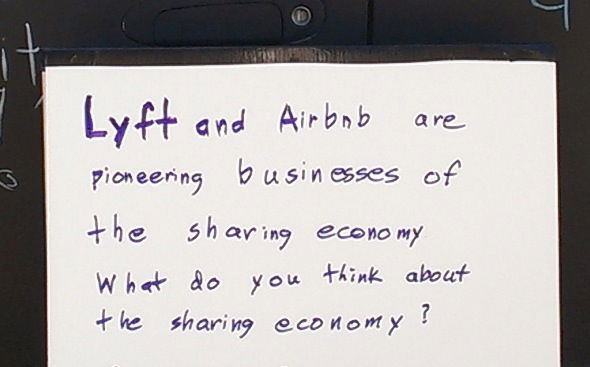 Lyft and Airbnb are
pioneering businesses of
the sharing economy
What do you think about
the sharing economy?